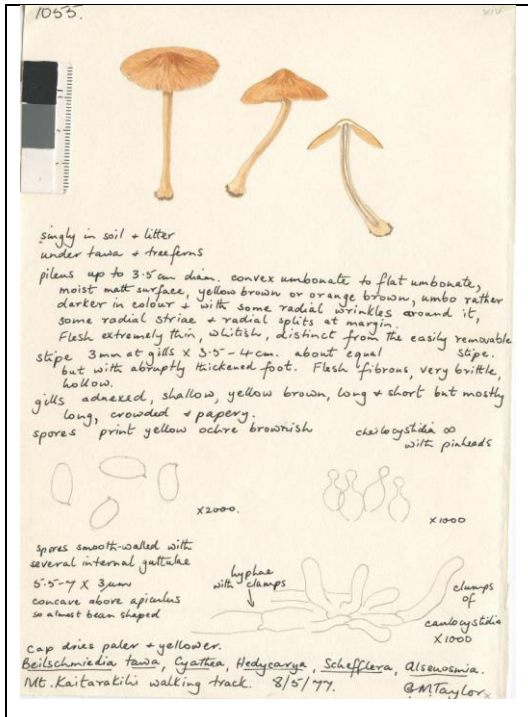 1055.
XIV
singly in soil + litter
under tawa + treeferns
pileus up to 3.5cm diam. convex umbonate to flat umbonate,
moist matt surface, yellow brown or orange brown, umbo rather
darker in colour + with some radial wrinkles around it,
some radial striae + radial splits at margin.
Flesh extremely thin, whitish, distinct from the easily removable
stipe 3mm at gills x 3.5-4cm. about equal stipe.
but with abruptly thickened foot. Flesh fibrous, very brittle,
hollow.
gills adnexed, shallow, yellow brown, long & short but mostly
long, crowded & papery.
spores print yellow ochre brownish
cheilocystidia ∞
with pinheads
x2000.
x1000
spores smooth-walled with
several internal guttulae
5.5-7 x 3µm
concave above apiculus
so almost bean shaped
hyphae
with clamps
clumps
of
caulocystidia
x1000
cap dries paler + yellower.
Beilschmiedia tawa, Cyathea, Hedycarya, Schefflera, Alseuosmia.
Mt. Kaitarakihi walking track. 8/5/77. GMTaylor